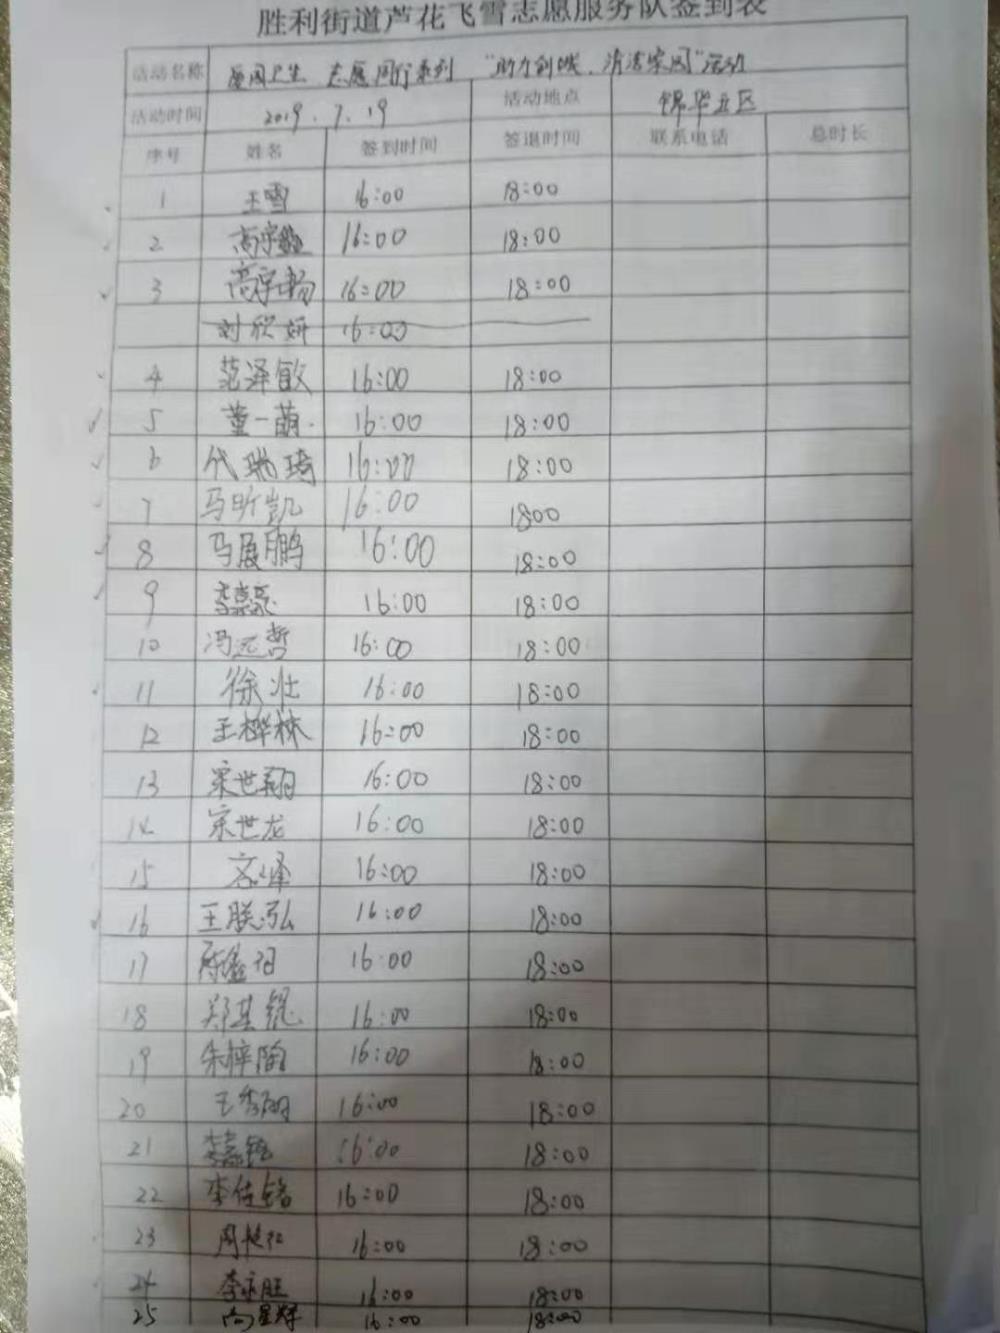 胜利街道芦花飞雪志愿服务队签到表
活动名称 爱国卫生 志愿同行系列 "助力创城、清洁家园"活动
活动时间 2019.7.19 活动地点 锦华五区
序号 姓名 签到时间 签退时间 联系电话 总时长
1 王雪 16:00 18:00
2 高宇 16:00 18:00
3 高宇畅 16:00 18:00
刘欣妍 16:00
4 范泽敏 16:00 18:00
5 董一萌 16:00 18:00
6 代瑞琦 16:00 18:00
7 马昕凯 16:00 1800
8 马展鹏 16:00 18:00
9 李 16:00 18:00
10 冯元哲 16:00 18:00
11 徐壮 16:00 18:00
12 王桦林 16:00 18:00
13 宋世翔 16:00 18:00
14 宋世龙 16:00 18:00
15 泽 16:00 18:00
16 王朕弘 16:00 18:00
17 16:00 18:00
18 郑其锟 16:00 18:00
19 朱梓陶 16:00 18:00
20 王秀丽 16:00 18:00
21 李 16:00 18:00
22 李佳铭 16:00 18:00
23 周 16:00 18:00
24 李永旺 16:00 18:00
25 高星辉 16:00 18:00